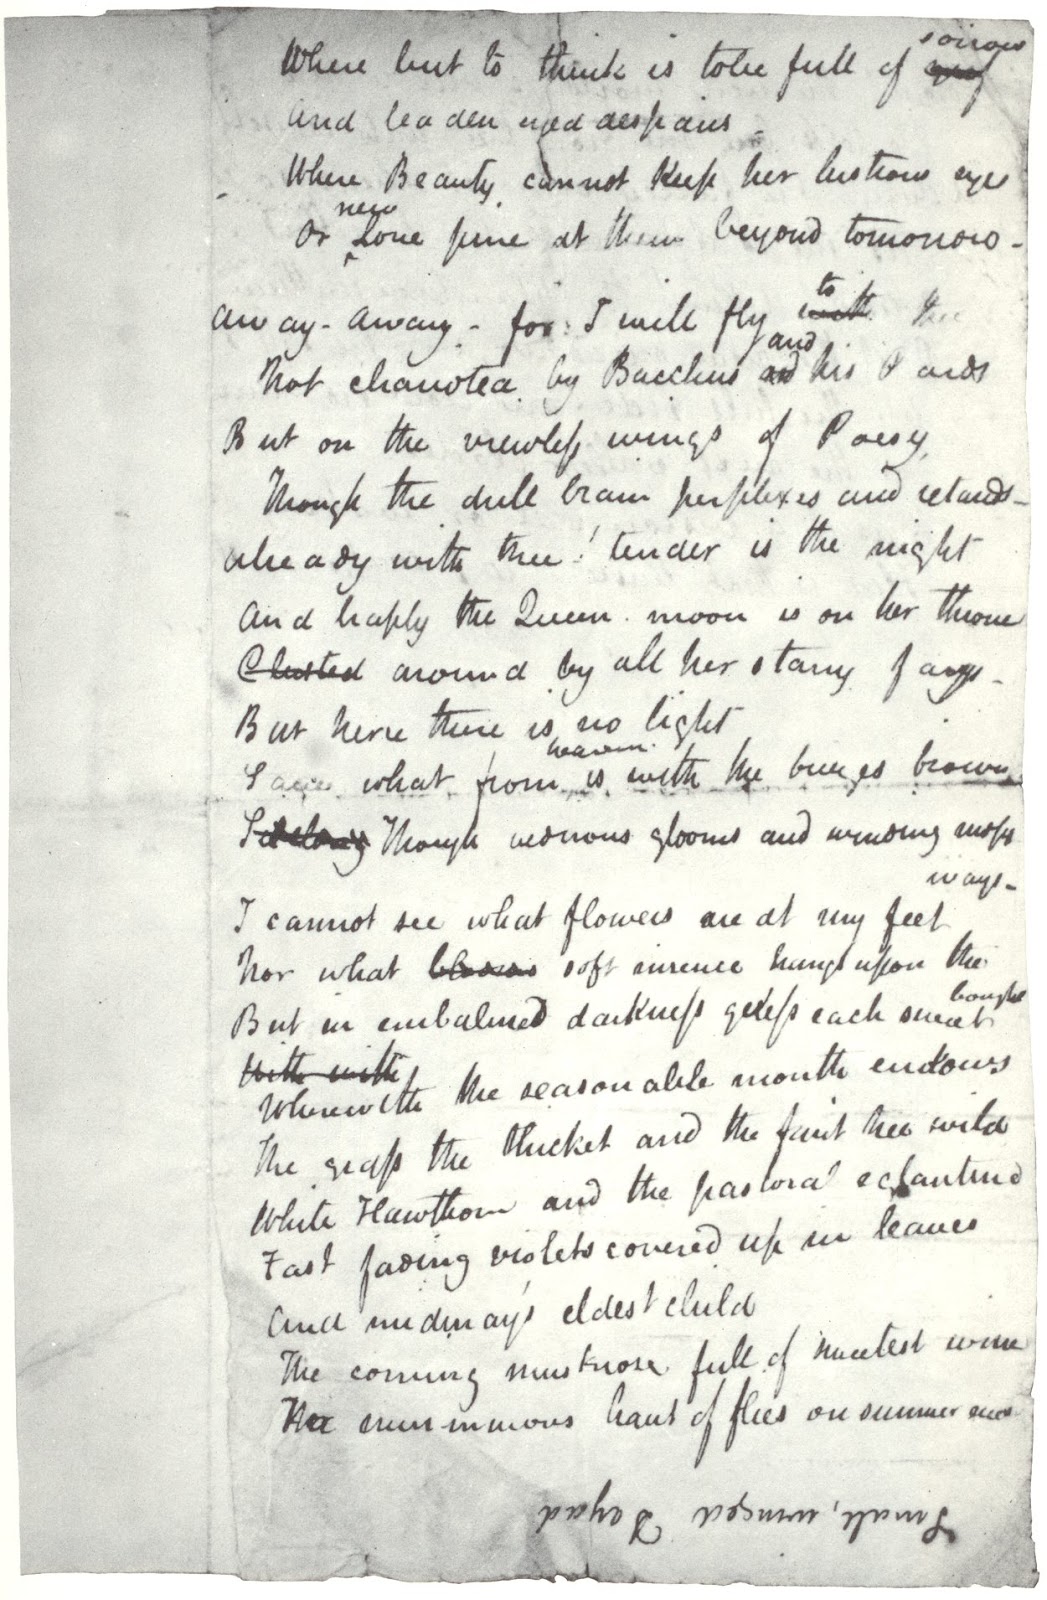 sorrow
Where but to think is to be full of grief
And leaden eyed despairs -
Where Beauty cannot keep her lustrous eyes
new
Or Love pine at them beyond tomorrow -
to
Away - away - for I will fly with thee
and
Not charioted by Bacchus and his Pards
But on the viewless wings of Poesy
Though the dull brain perplexes and retards -
Already with thee! tender is the night
And haply the Queen moon is on her throne
Clusted around by all her starry fays -
But here there is no light
heaven
Save what from is with the breezes blown
Sidelong Though verdrous glooms and winding mossy
ways -
I cannot see what flowers are at my feet
Nor what blooms soft incense hangs upon the
boughs
But in embalmed darkness guess each sweet
With with
Wherewith the seasonable month endows
The grass the thicket and the fruit tree wild
White Hawthorn and the pastoral eglantine
Fast fading violets covered up in leaves
And midmay's eldest child
The coming muskrose full of sweetest wine
The murmurous haunt of flies on summer eves
Small, winged Dryad